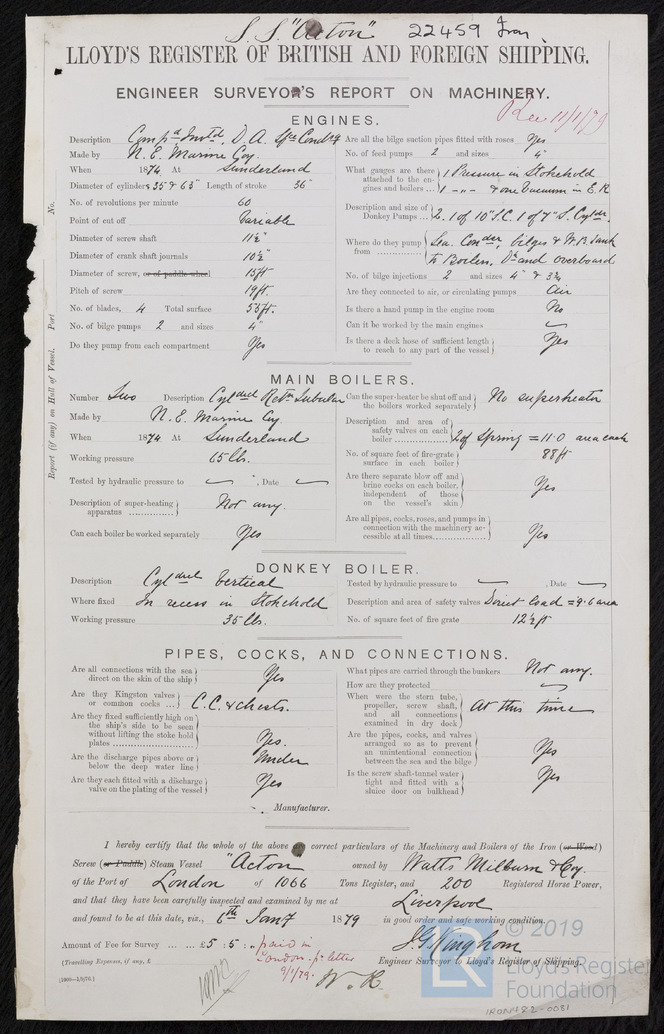 S.S. "Acton" 22459 Iron
LLOYD'S REGISTER OF BRITISH AND FOREIGN SHIPPING.
ENGINEER SURVEYOR'S REPORT ON MACHINERY.
Rec 11/1/79
No.
Port
Report (if any) on Hull of Vessel.
ENGINES.
Description Comp.d Invt.d, D.A. Sfce Condsg
Made by N.E. Marine Coy.
When 1874 At Sunderland
Diameter of cylinders 35 & 65" Length of stroke 36"
No. of revolutions per minute 60
Point of cut off Variable
Diameter of screw shaft 11½"
Diameter of crank shaft journals 10½"
Diameter of screw, or of paddle wheel 15ft
Pitch of screw 19ft.
No. of blades, 4 Total surface 55ft.
No. of bilge pumps 2 and sizes 4"
Do they pump from each compartment Yes
Are all the bilge suction pipes fitted with roses Yes
No. of feed pumps 2 and sizes 4"
What gauges are there attached to the engines and boilers ... 1 Pressure in Stokehold
1 -"- & one Vacuum in E.R
Description and size of Donkey Pumps ... 2. 1 of 10" S.C. 1 of 7" S. Cylder.
Where do they pump from Sea. Conder, bilges & W.B. Tank
to Boilers, Dk and overboard
No. of bilge injections 2 and sizes 4" & 3¾
Are they connected to air, or circulating pumps Air
Is there a hand pump in the engine room No
Can it be worked by the main engines
Is there a deck hose of sufficient length to reach to any part of the vessel Yes
MAIN BOILERS.
Number Two Description Cyldrcl Retn Tubular
Made by N.E. Marine Coy.
When 1874 At Sunderland
Working pressure 65 lbs.
Tested by hydraulic pressure to , Date
Description of super-heating apparatus Not any.
Can each boiler be worked separately Yes
Can the super-heater be shut off and the boilers worked separately No superheater
Description and area of safety valves on each boiler 2 of Spring = 11.0 area each
No. of square feet of fire-grate surface in each boiler 88ft
Are there separate blow off and brine cocks on each boiler, independent of those on the vessel's skin Yes
Are all pipes, cocks, roses, and pumps in connection with the machinery accessible at all times Yes
DONKEY BOILER.
Description Cyldrcl Vertical
Where fixed In recess in Stokehold
Working pressure 35 lbs.
Tested by hydraulic pressure to , Date
Description and area of safety valves Direct load = 9.6 area
No. of square feet of fire grate 12½ ft
PIPES, COCKS, AND CONNECTIONS.
Are all connections with the sea direct on the skin of the ship Yes
Are they Kingston valves or common cocks ... C.C. & chests.
Are they fixed sufficiently high on the ship's side to be seen without lifting the stoke hold plates Yes
Are the discharge pipes above or below the deep water line Under
Are they each fitted with a discharge valve on the plating of the vessel Yes
What pipes are carried through the bunkers Not any.
How are they protected
When were the stern tube, propeller, screw shaft, and all connections examined in dry dock At this time
Are the pipes, cocks, and valves arranged so as to prevent an unintentional connection between the sea and the bilge Yes
Is the screw shaft-tunnel water tight and fitted with a sluice door on bulkhead Yes
Manufacturer.
I hereby certify that the whole of the above correct particulars of the Machinery and Boilers of the Iron (or Wood)
Screw (or Paddle) Steam Vessel "Acton" owned by Watts Milburn & Coy.
of the Port of London of 1066 Tons Register, and 200 Registered Horse Power,
and that they have been carefully inspected and examined by me at Liverpool
and found to be at this date, viz., 6th Jany 1879 in good order and safe working condition.
J.G. Kingham
Engineer Surveyor to Lloyd's Register of Shipping.
Amount of Fee for Survey ... ... £5 : 5 : "
paid in London pr letter 9/1/79.
(Travelling Expenses, if any, £
W.R.
© 2019
LR
Lloyd's Register
Foundation
IRON782-0051